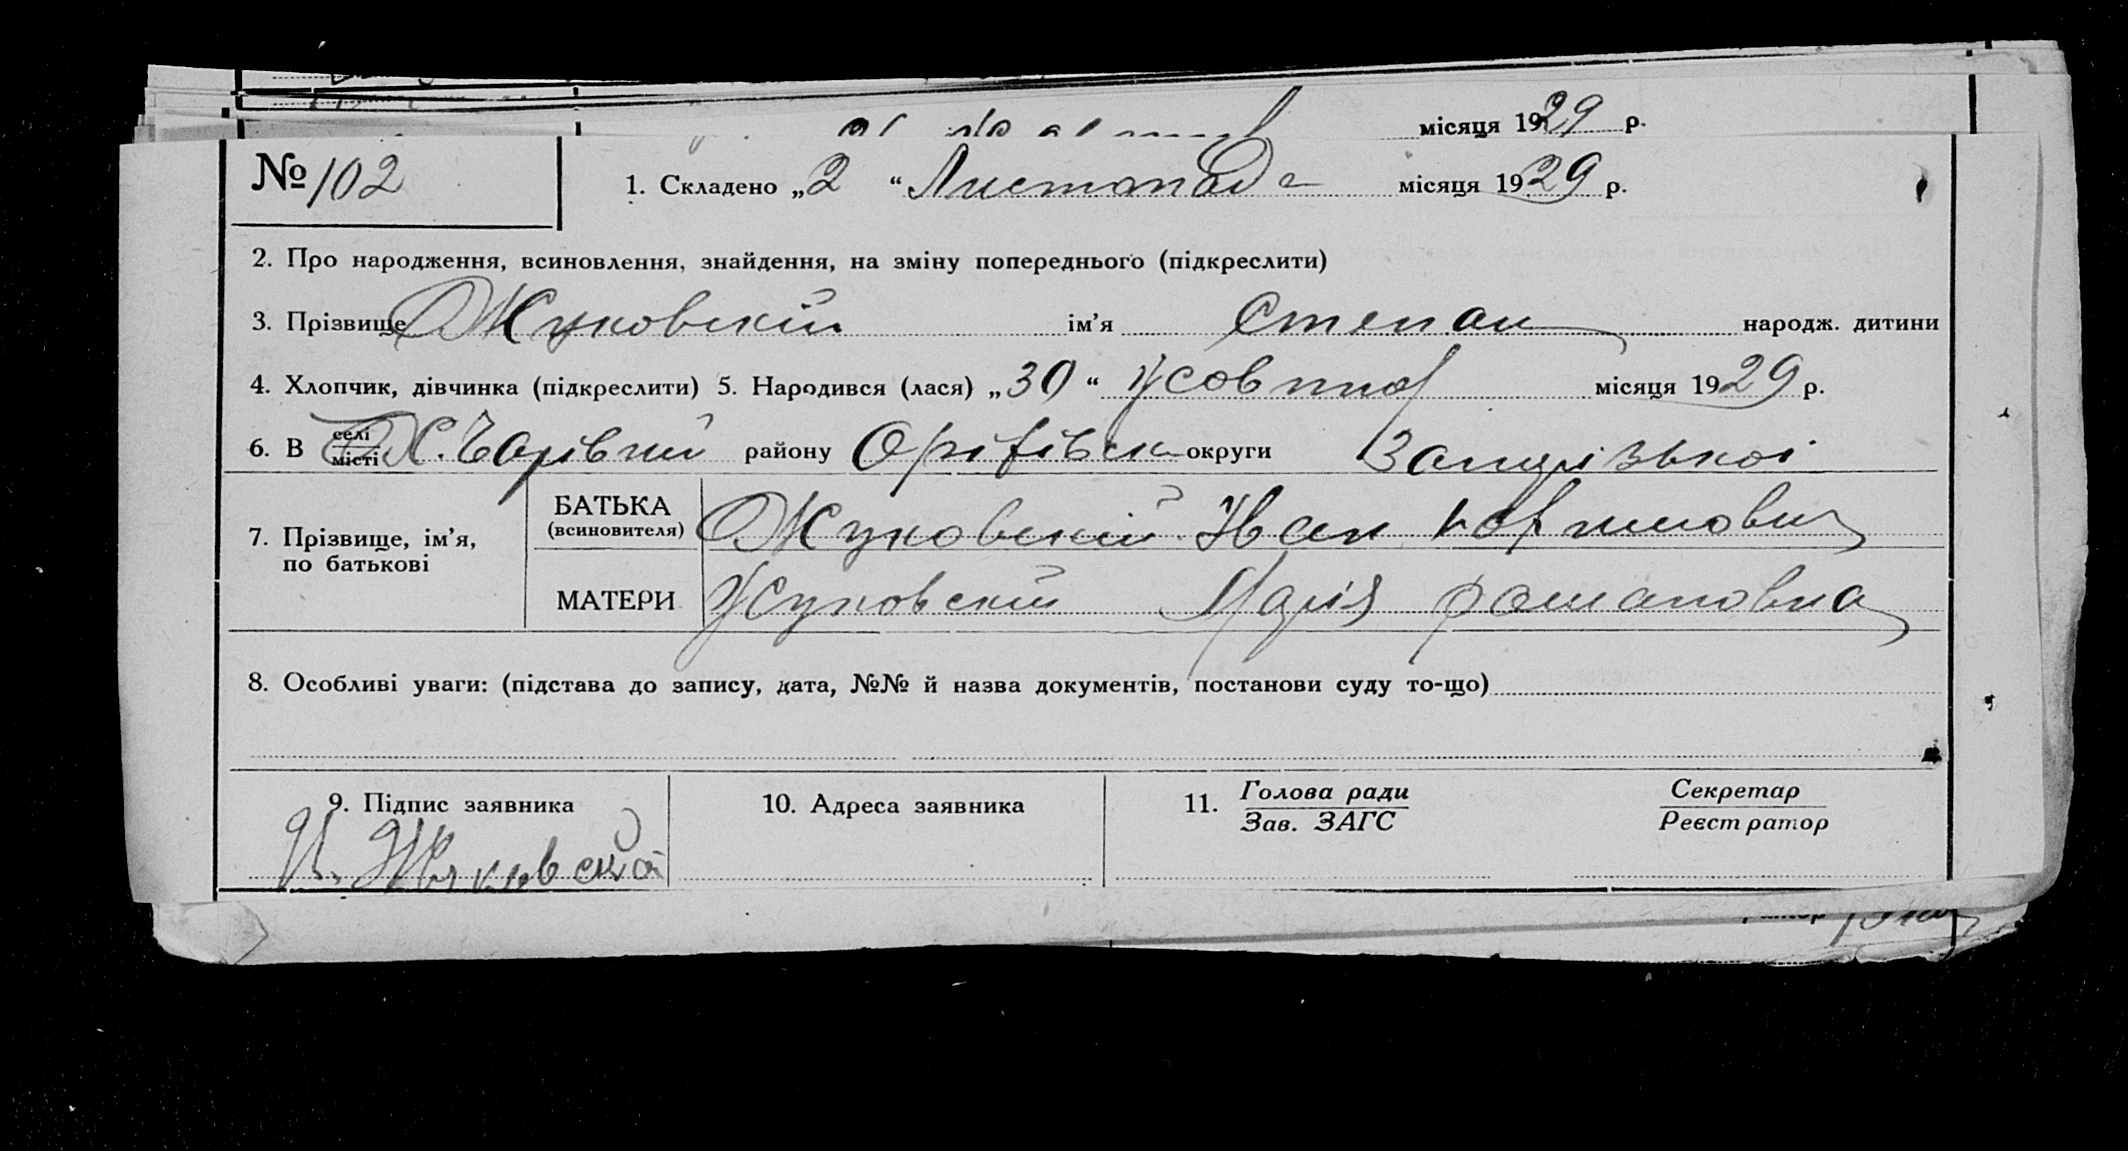 місяця 1929 р.
№ 102
1. Складено „2“ Листопада місяця 1929 р.
2. Про народження, всиновлення, знайдення, на зміну попереднього (підкреслити)
3. Прізвище Жуковскій ім’я Степан народж. дитини
4. Хлопчик, дівчинка (підкреслити) 5. Народився (лася) „30“ жовтня місяця 1929 р.
6. В селі місті Х. Чарівний району Оріхівськ округи Запорізької
7. Прізвище, ім’я, по батькові
БАТЬКА (всиновителя) Жуковскій Иван
МАТЕРИ Жуковскій Марія Романовна
8. Особливі уваги: (підстава до запису, дата, №№ й назва документів, постанови суду то-що)
9. Підпис заявника
10. Адреса заявника
11. Голова ради Зав. ЗАГС
Секретар Реєстратор
И. Жуковский